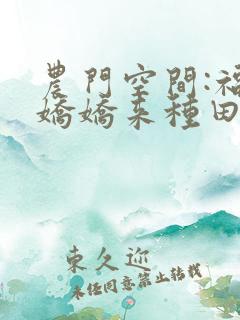 農門空間:福
嬌嬌來種田
東久迎
未經同意禁止轉載